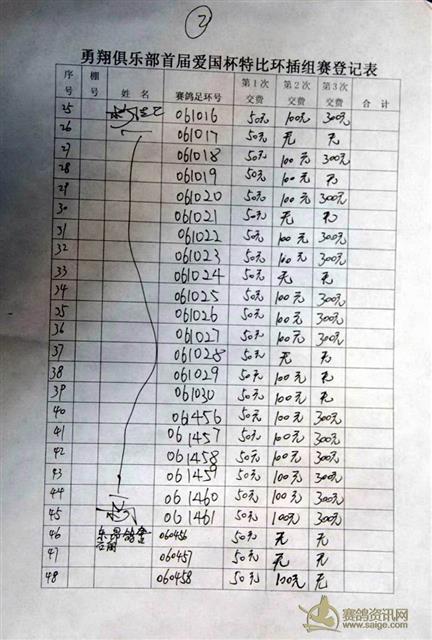 2
勇翔俱乐部首届爱国杯特比环插组赛登记表
序号 棚号 姓名 赛鸽足环号 第1次交费 第2次交费 第3次交费 合计
25 061016 50元 100元 300元
26 061017 50元 无 无
27 061018 50元 100元 300元
28 061019 50元 100元 无
29 061020 50元 100元 300元
30 061021 50元 无 无
31 061022 50元 100元 300元
32 061023 50元 100元 300元
33 061024 50元 无 无
34 061025 50元 100元 300元
35 061026 50元 100元 300元
36 061027 50元 100元 300元
37 061028 50元 无 无
38 061029 50元 100元 无
39 061030 50元 100元 无
40 061456 50元 100元 300元
41 061457 50元 100元 300元
42 061458 50元 100元 300元
43 061459 50元 100元 300元
44 061460 50元 100元 300元
45 061461 50元 100元 300元
46 060456 50元 无 无
47 060457 50元 无 无
48 060458 50元 100元 无
赛鸽资讯网
www.saige.com